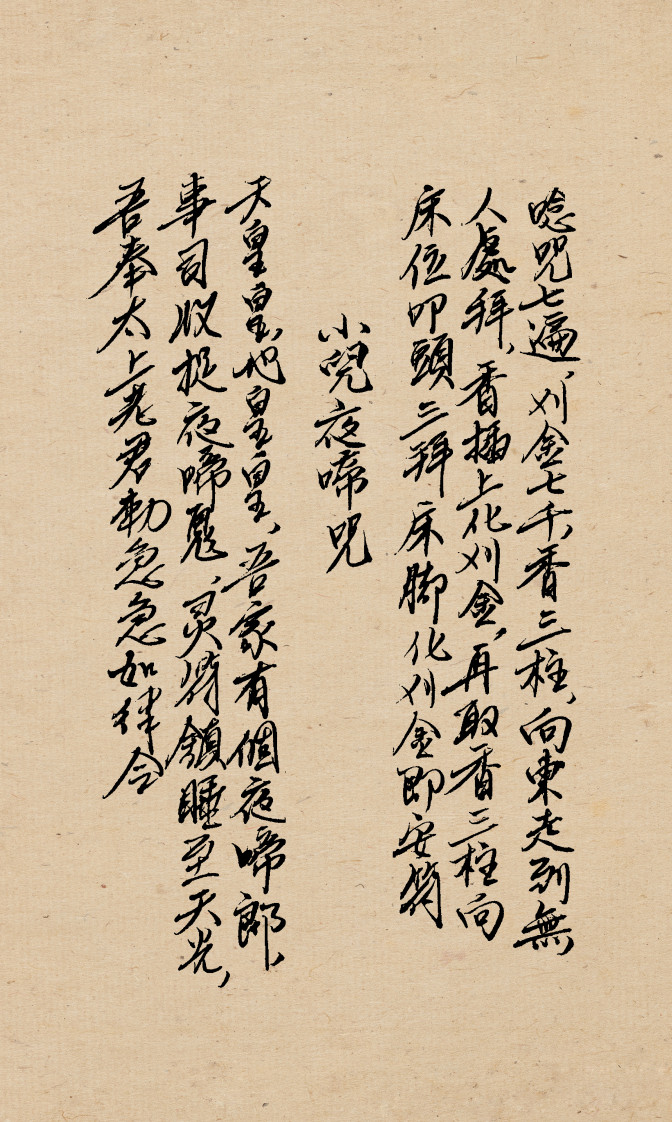 唸咒七遍，刈金七千，香三柱，向東走到無
人處拜，香插上化刈金，再取香三柱向
床位叩頭三拜床脚化刈金即安符
小兒夜啼咒
天皇皇，地皇皇、吾家有個夜啼郎，
事司收捉夜啼鬼、灵符鎮睡至天光，
吾奉太上老君勅急急如律令